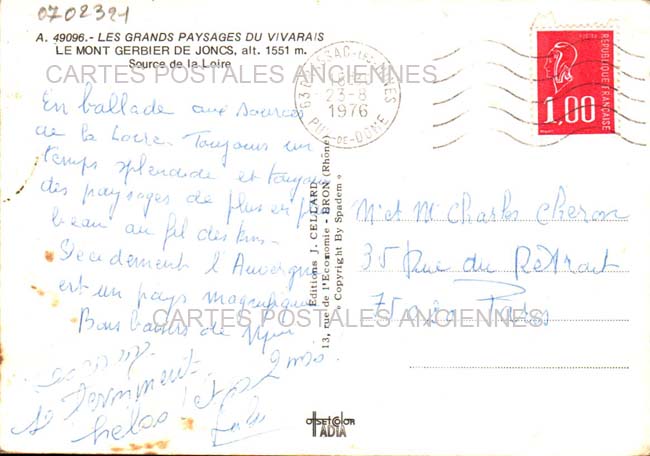 0702321
A. 49096.- LES GRANDS PAYSAGES DU VIVARAIS
LE MONT GERBIER DE JONCS, alt. 1551 m.
Source de la Loire
CARTES POSTALES ANCIENNES
En ballade aux sources
de la Loire. Toujours un
temps splendide et toujours
des paysages de plus en plus
beau au fil des kms.
Décidement l'Auvergne
est un pays magnifique
Bons baisers de
CARTES POSTALES ANCIENNES
se terminent
helas
Editions J. CELLARD
13, rue de l'Economie - BRON (Rhône)
« Copyright By Spadem »
63
23-8
1976
PUY-DE-DOME
REPUBLIQUE FRANÇAISE
1,00
Mr et Me Charles Cheron
35 Rue du Retrait
75020 Paris
OFFSETCOLOR
IADIA